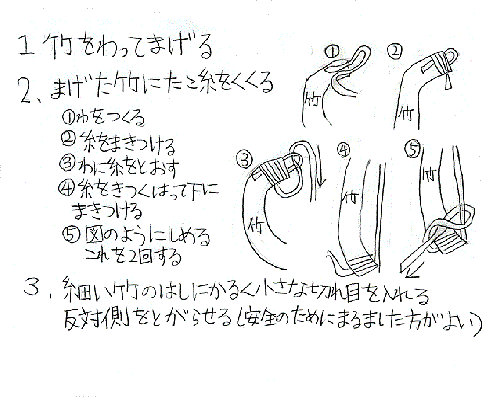 1 竹をわってまげる
2、まげた竹にたこ糸をくくる
①わをつくる
②糸をまきつける
③わに糸をとおす
④糸をきつくはって下に
まきつける
⑤図のようにしめる
これを2回する
① ② ③ ④ ⑤
竹 竹 竹 竹 竹
3、細い竹のはしにかるく小さな切れ目を入れる
反対側をとがらせる(安全のためにまるました方がよい)